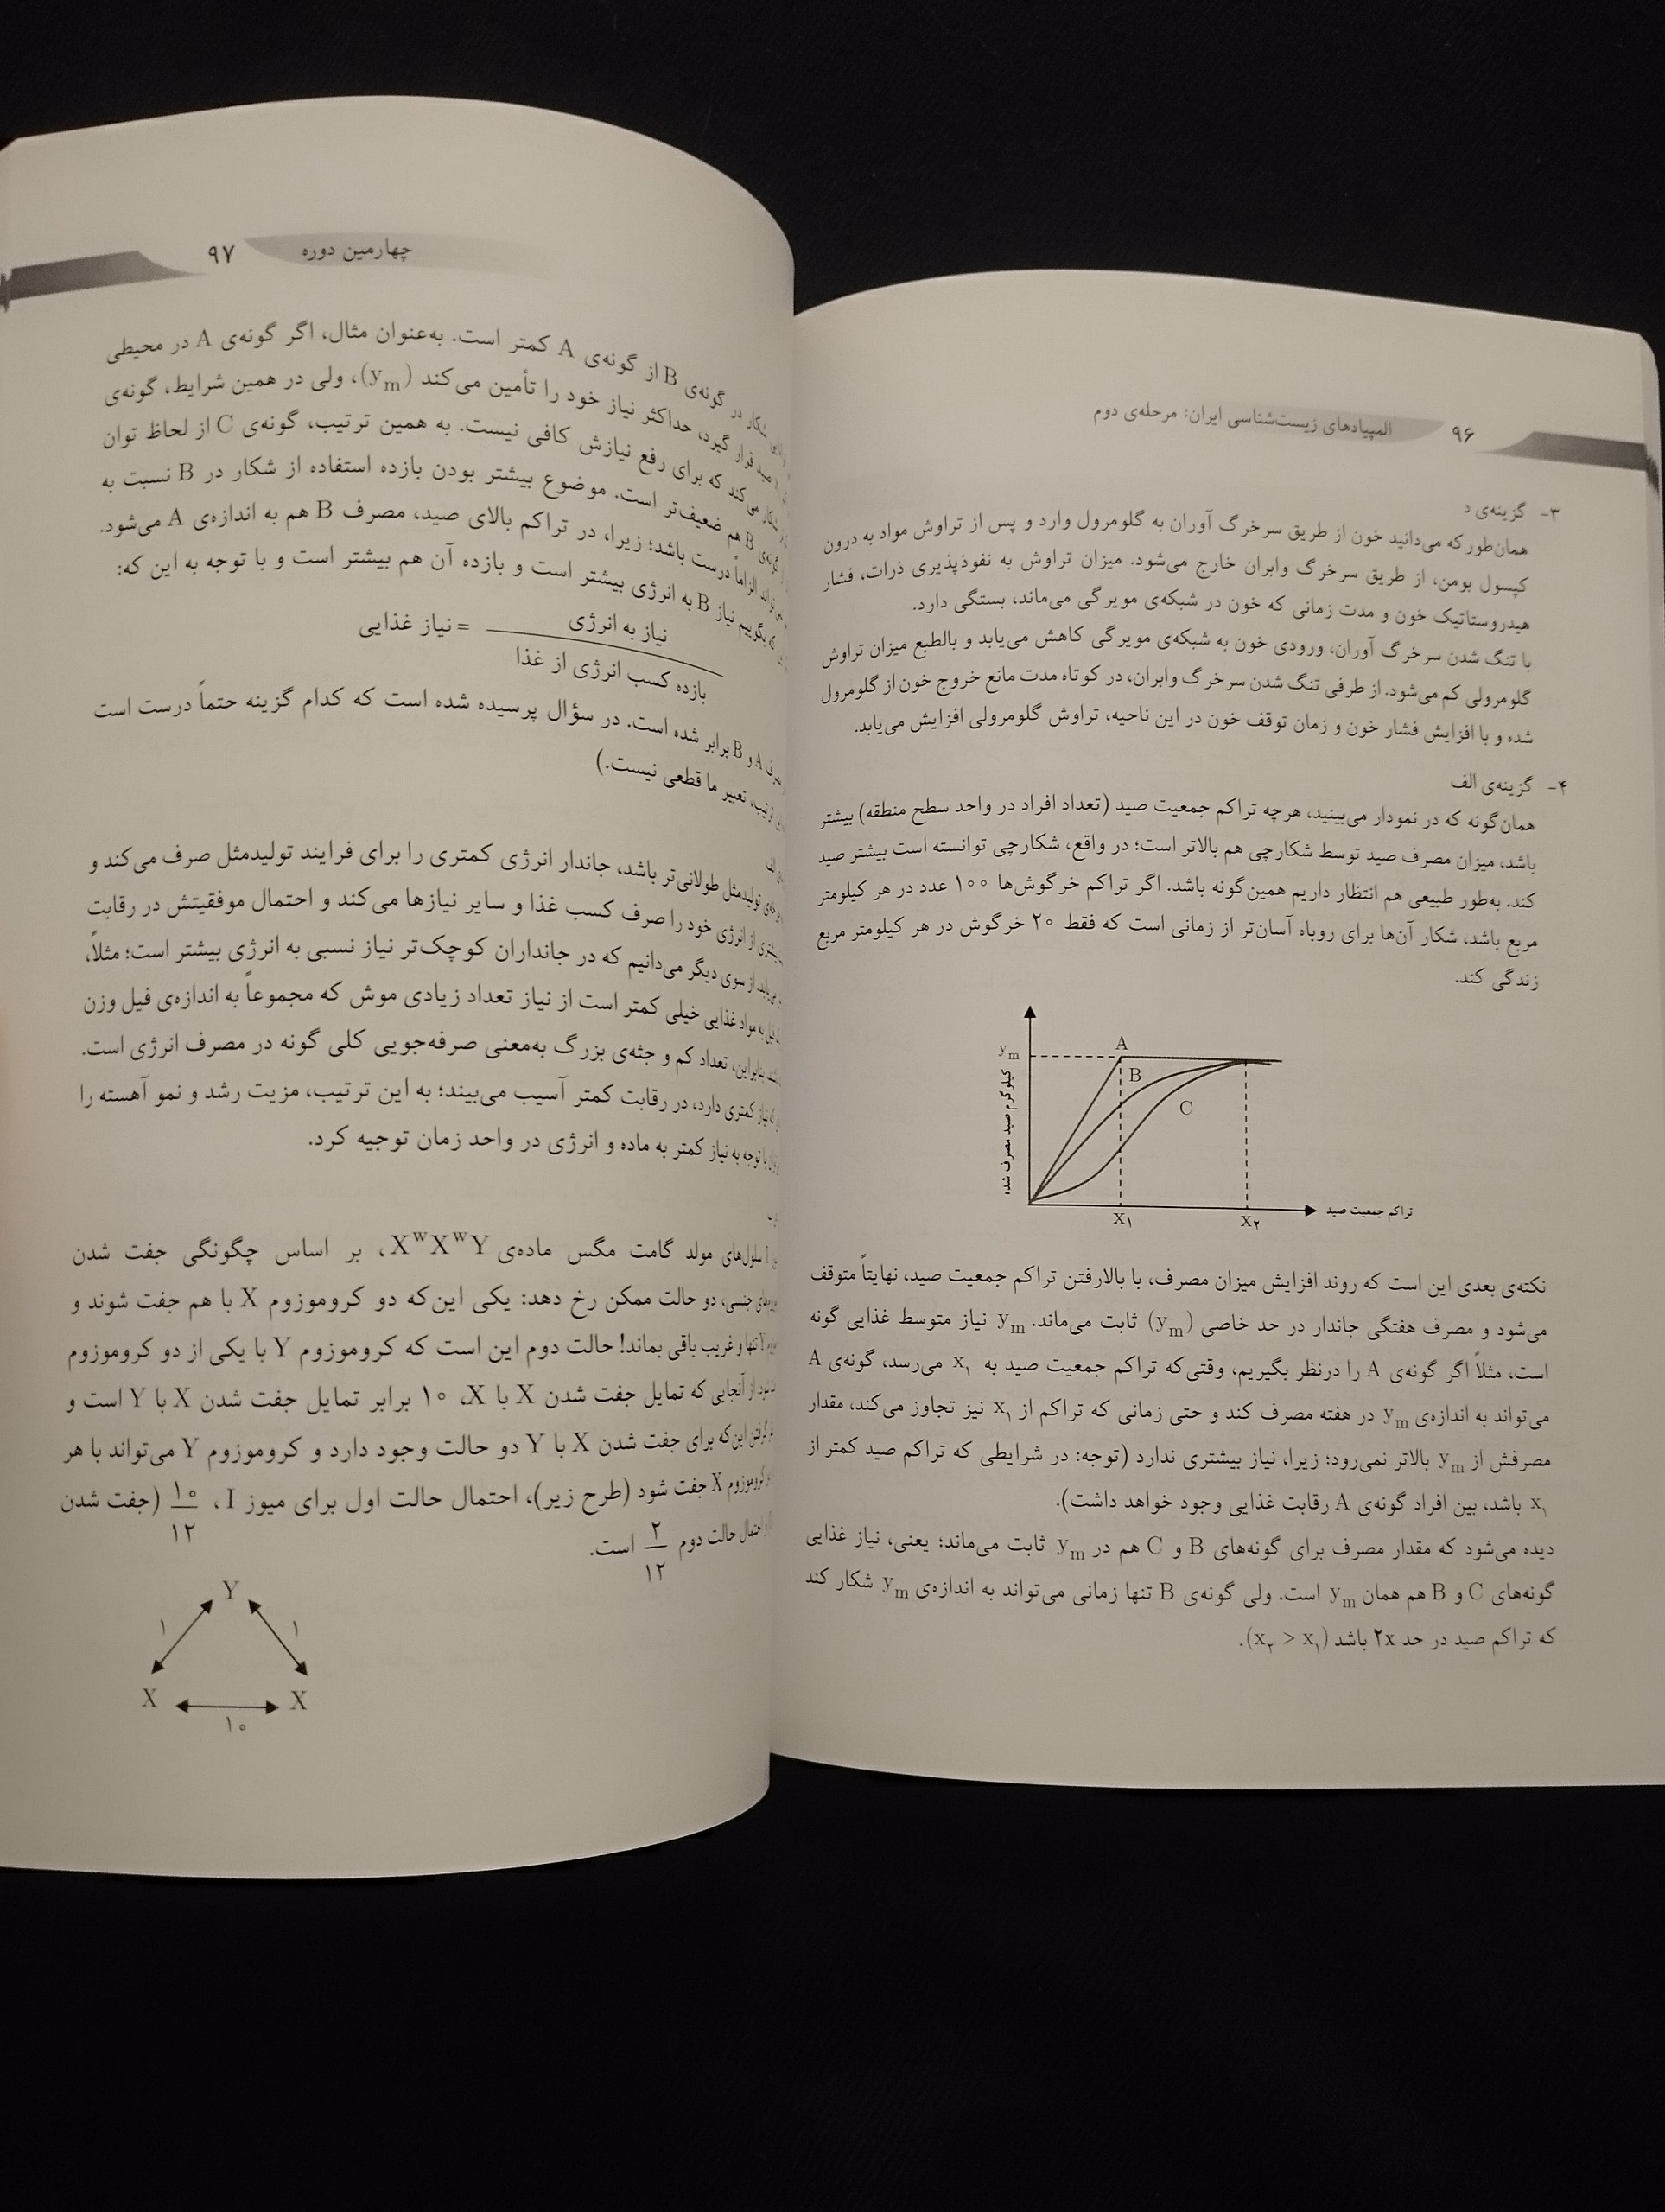 ۹۶ المپیادهای زیست‌شناسی ایران: مرحله‌ی دوم
۳- گزینه‌ی د
همان‌طور که می‌دانید خون از طریق سرخرگ آوران به گلومرول وارد و پس از تراوش مواد به درون
کپسول بومن، از طریق سرخرگ وابران خارج می‌شود. میزان تراوش به نفوذپذیری ذرات، فشار
هیدروستاتیک خون و مدت زمانی که خون در شبکه‌ی مویرگی می‌ماند، بستگی دارد.
با تنگ شدن سرخرگ آوران، ورودی خون به شبکه‌ی مویرگی کاهش می‌یابد و بالطبع میزان تراوش
گلومرولی کم می‌شود. از طرفی تنگ شدن سرخرگ وابران، در کوتاه مدت مانع خروج خون از گلومرول
شده و با افزایش فشار خون و زمان توقف خون در این ناحیه، تراوش گلومرولی افزایش می‌یابد.
۴- گزینه‌ی الف
همان‌گونه که در نمودار می‌بینید، هرچه تراکم جمعیت صید (تعداد افراد در واحد سطح منطقه) بیشتر
باشد، میزان مصرف صید توسط شکارچی هم بالاتر است؛ در واقع، شکارچی توانسته است بیشتر صید
کند. به‌طور طبیعی هم انتظار داریم همین‌گونه باشد. اگر تراکم خرگوش‌ها ۱۰۰ عدد در هر کیلومتر
مربع باشد، شکار آن‌ها برای روباه آسان‌تر از زمانی است که فقط ۲۰ خرگوش در هر کیلومتر مربع
زندگی کند.
کیلوگرم صید مصرف شده
yₘ
A
B
C
x₁
x₂
تراکم جمعیت صید
نکته‌ی بعدی این است که روند افزایش میزان مصرف، با بالارفتن تراکم جمعیت صید، نهایتاً متوقف
می‌شود و مصرف هفتگی جاندار در حد خاصی (yₘ) ثابت می‌ماند. yₘ نیاز متوسط غذایی گونه
است، مثلاً اگر گونه‌ی A را درنظر بگیریم، وقتی‌که تراکم جمعیت صید به x₁ می‌رسد، گونه‌ی A
می‌تواند به اندازه‌ی yₘ در هفته مصرف کند و حتی زمانی که تراکم از x₁ نیز تجاوز می‌کند، مقدار
مصرفش از yₘ بالاتر نمی‌رود؛ زیرا، نیاز بیشتری ندارد (توجه: در شرایطی که تراکم صید کمتر از
x₁ باشد، بین افراد گونه‌ی A رقابت غذایی وجود خواهد داشت).
دیده می‌شود که مقدار مصرف برای گونه‌های B و C هم در yₘ ثابت می‌ماند؛ یعنی، نیاز غذایی
گونه‌های C و B هم همان yₘ است. ولی گونه‌ی B تنها زمانی می‌تواند به اندازه‌ی yₘ شکار کند
که تراکم صید در حد ۲x باشد (x₂ > x₁).
چهارمین دوره ۹۷
شکار در گونه‌ی B از گونه‌ی A کمتر است. به‌عنوان مثال، اگر گونه‌ی A در محیطی
قرار گیرد، حداکثر نیاز خود را تأمین می‌کند (yₘ)، ولی در همین شرایط، گونه‌ی
شکار می‌کند که برای رفع نیازش کافی نیست. به همین ترتیب، گونه‌ی C از لحاظ توان
B هم ضعیف‌تر است. موضوع بیشتر بودن بازده استفاده از شکار در B نسبت به
الزاماً درست باشد؛ زیرا، در تراکم بالای صید، مصرف B هم به اندازه‌ی A می‌شود.
بگوییم نیاز B به انرژی بیشتر است و بازده آن هم بیشتر است و با توجه به این که:
نیاز به انرژی
= نیاز غذایی
بازده کسب انرژی از غذا
A و B برابر شده است. در سؤال پرسیده شده است که کدام گزینه حتماً درست است
تعبیر ما قطعی نیست.)
تولیدمثل طولانی‌تر باشد، جاندار انرژی کمتری را برای فرایند تولیدمثل صرف می‌کند و
از انرژی خود را صرف کسب غذا و سایر نیازها می‌کند و احتمال موفقیتش در رقابت
از سوی دیگر می‌دانیم که در جانداران کوچک‌تر نیاز نسبی به انرژی بیشتر است؛ مثلاً،
به مواد غذایی خیلی کمتر است از نیاز تعداد زیادی موش که مجموعاً به اندازه‌ی فیل وزن
بنابراین، تعداد کم و جثه‌ی بزرگ به‌معنی صرفه‌جویی کلی گونه در مصرف انرژی است.
نیاز کمتری دارد، در رقابت کمتر آسیب می‌بیند؛ به این ترتیب، مزیت رشد و نمو آهسته را
با توجه به نیاز کمتر به ماده و انرژی در واحد زمان توجیه کرد.
I سلول‌های مولد گامت مگس ماده‌ی XʷXʷY، بر اساس چگونگی جفت شدن
جنسی، دو حالت ممکن رخ دهد: یکی این‌که دو کروموزوم X با هم جفت شوند و
Y تنها و غریب باقی بماند! حالت دوم این است که کروموزوم Y با یکی از دو کروموزوم
از آنجایی که تمایل جفت شدن X با X، ۱۰ برابر تمایل جفت شدن X با Y است و
این‌که برای جفت شدن X با Y دو حالت وجود دارد و کروموزوم Y می‌تواند با هر
کروموزوم X جفت شود (طرح زیر)، احتمال حالت اول برای میوز I، ۱۰/۱۲ (جفت شدن
احتمال حالت دوم ۲/۱۲ است.
Y
۱ ۱
X X
۱۰